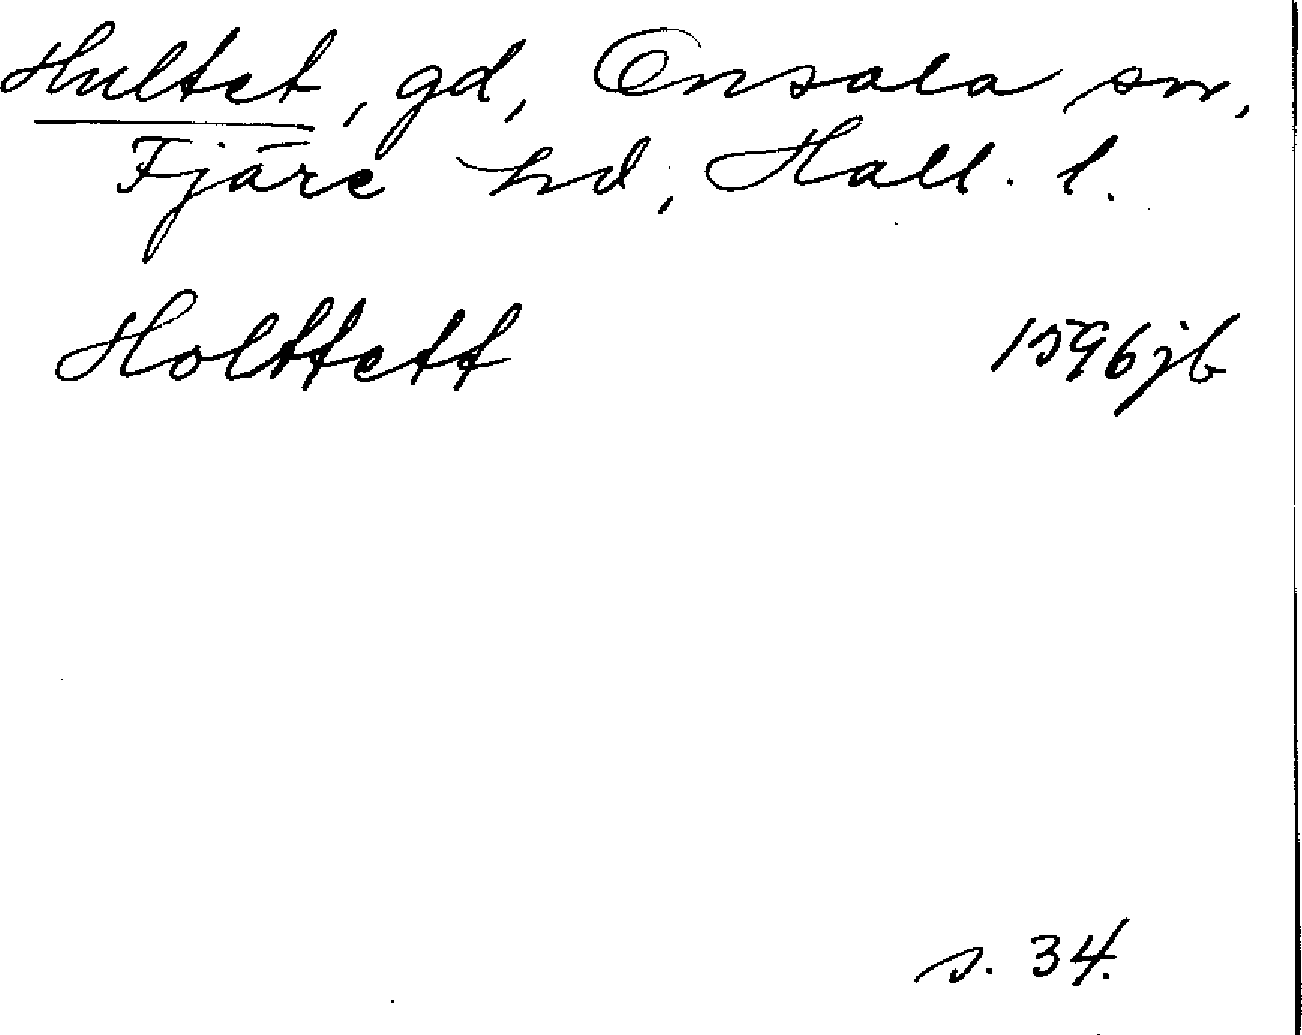 Hultet, gd, Onsala sn,
Fjäre hd, Hall. l.
Holttett 1596 jb
s. 34.